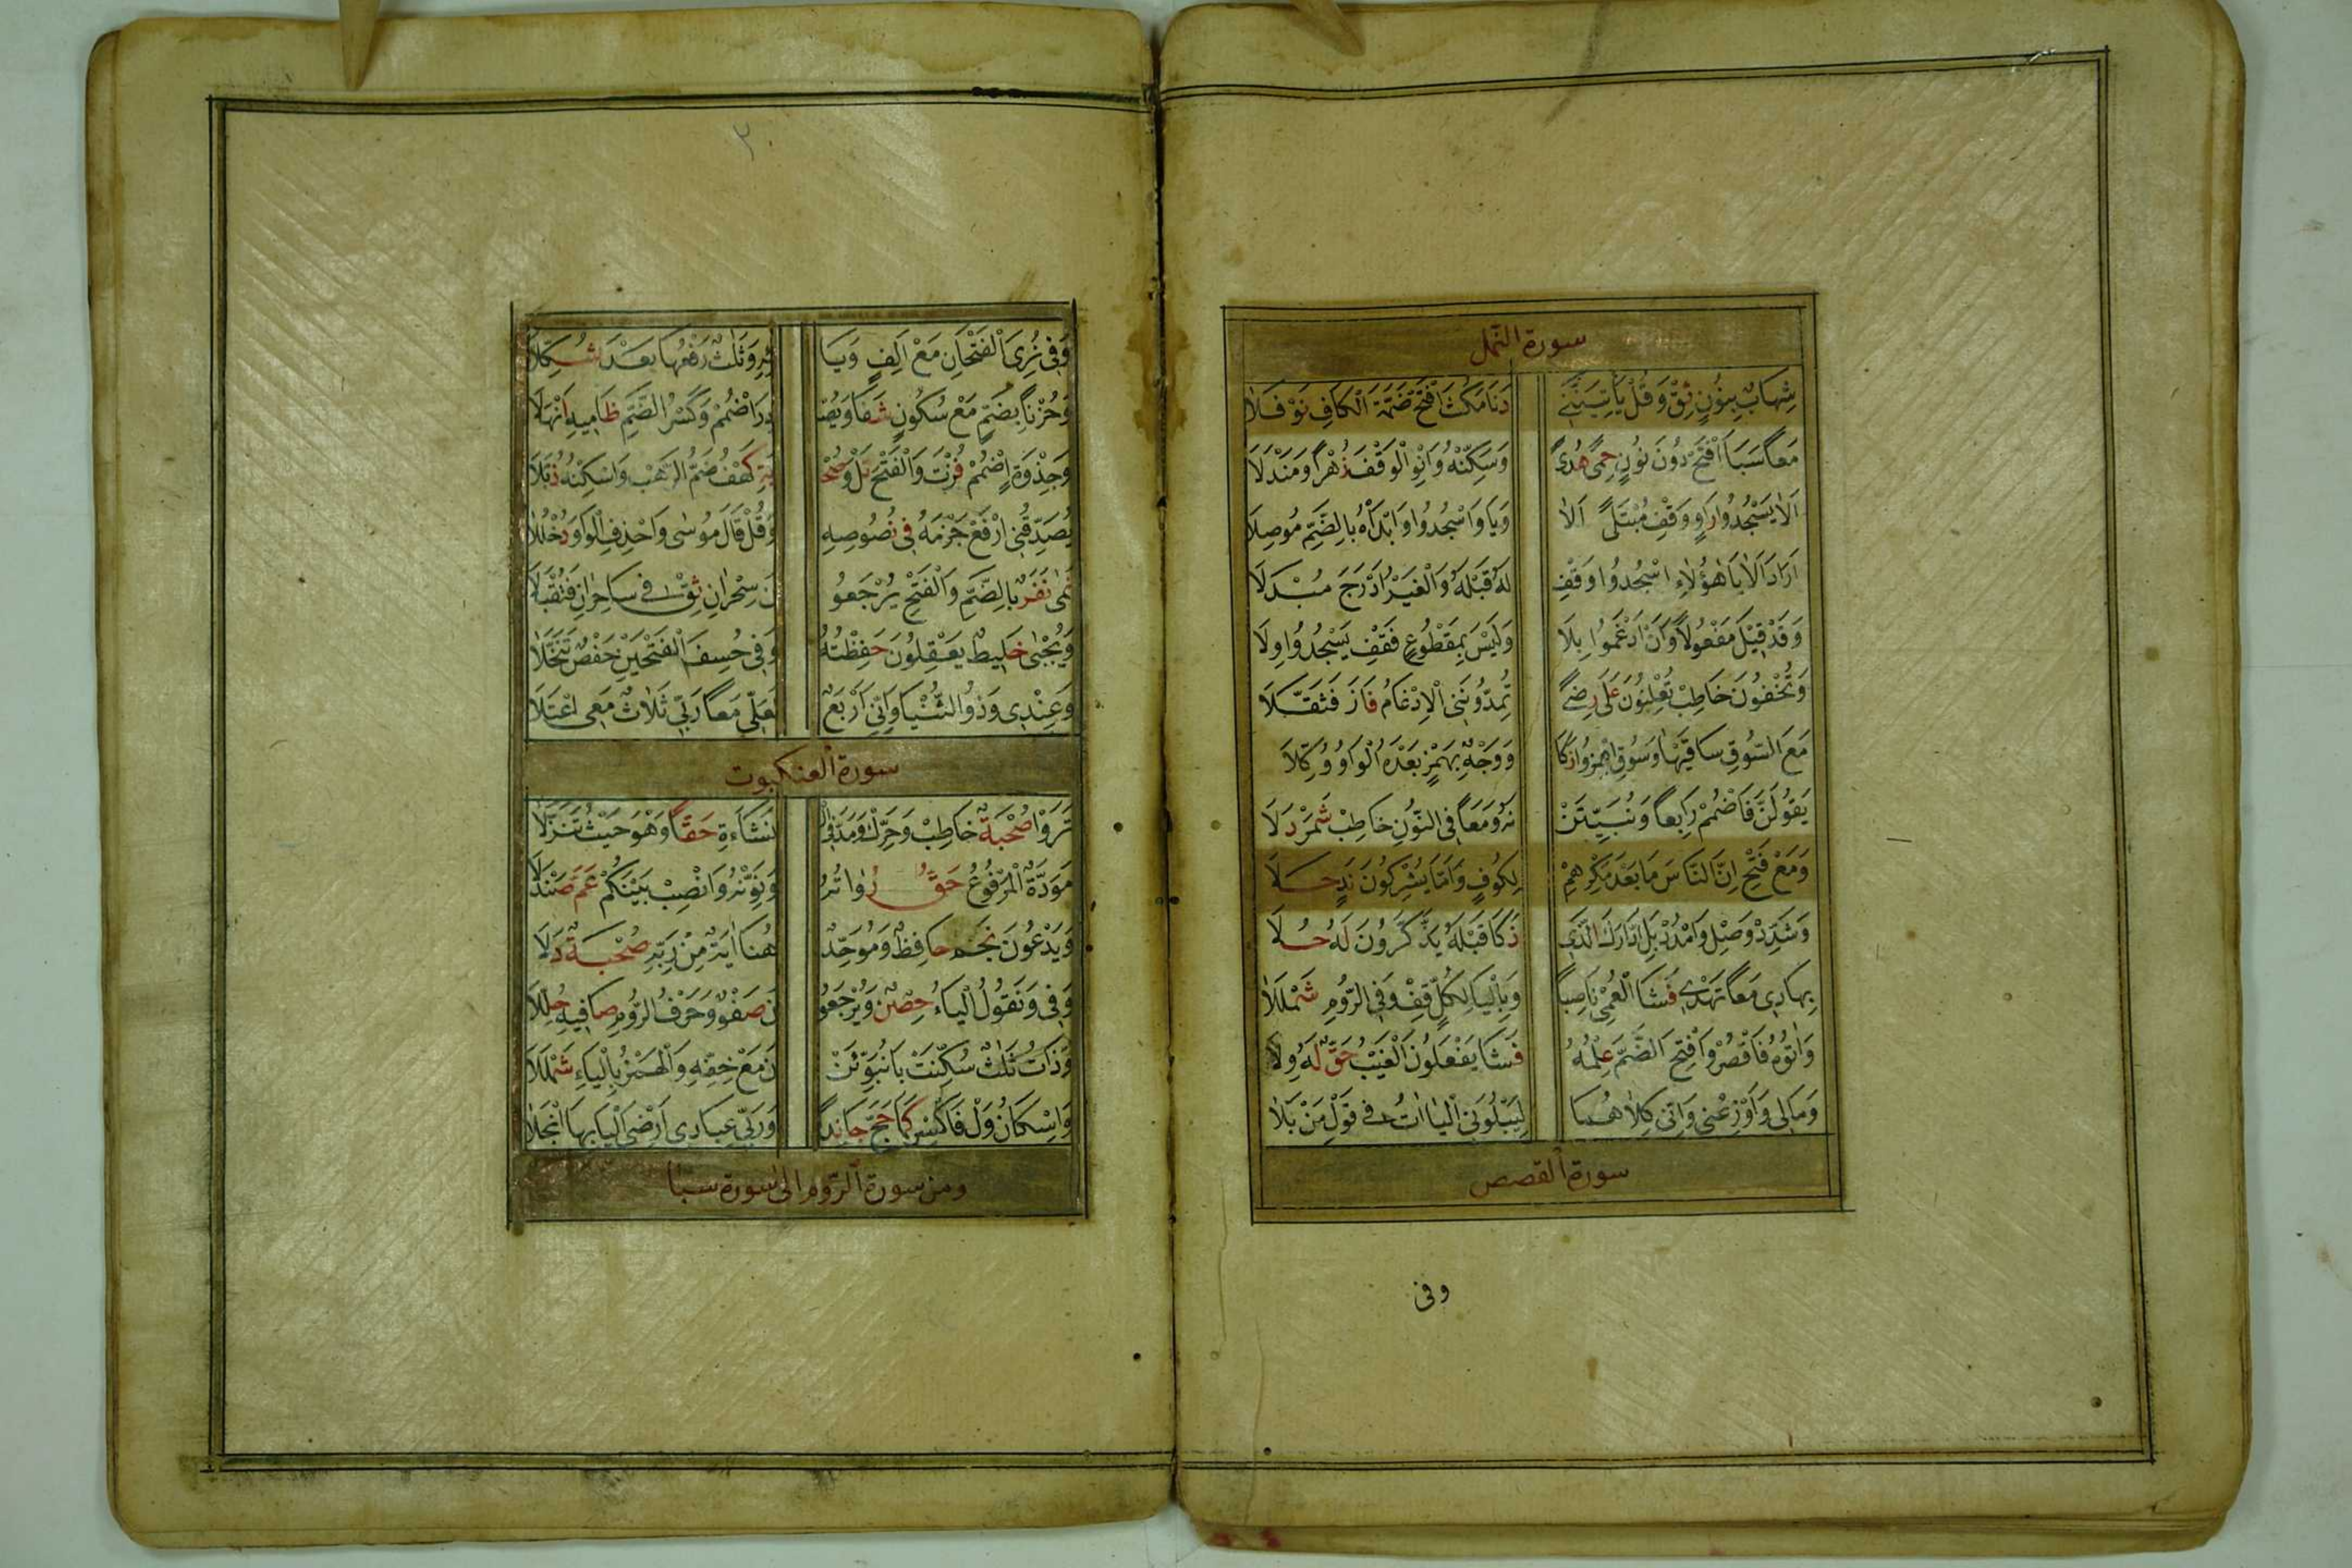 سورة النمل
شِهَابٌ بِنُونٍ ثِقْ وَقُلْ يَأْتِيَنَّنِي دَنَا مَكُثَ افْتَحْ ضَمَّةَ الْكَافِ نَوْفَلَا
مَعًا سَبَأَ افْتَحْ دُونَ نُونٍ حِمًى هُدًى وَسَكِّنْهُ وَانْوِ الْوَقْفَ زُهْرًا وَمَنْدَلَا
أَلَا يَسْجُدُوا رَاوٍ وَقِفْ مُبْتَلًى أَلَا وَيَا وَاسْجُدُوا وَابْدَأْهُ بِالضَّمِّ مُوصِلَا
أَرَادَ أَلَا يَا هٰؤُلَاءِ اسْجُدُوا وَقِفْ لَهُ قَبْلَهُ وَالْغَيْرُ أَدْرَجَ مُبْدِلَا
وَقَدْ قِيلَ مَفْعُولًا وَأَنْ أَدْغَمُوا بِلَا وَلَيْسَ بِمَقْطُوعٍ فَقِفْ يَسْجُدُوا وِلَا
وَتُخْفُونَ خَاطِبْ تُعْلِنُونَ عَلَى رِضًى تُمِدُّونَنِي الْإِدْغَامُ فَازَ فَثَقَّلَا
مَعَ السُّوقِ سَاقَيْهَا وَسُوقِ اهْمِزُوا زَكَا وَوَجْهٌ بِهَمْزٍ بَعْدَهُ الْوَاوُ وُكِّلَا
يَقُولَنَّ فَاضْمُمْ رَابِعًا وَنُبَيِّتَنْ نَهُ وَمَعًا فِي النُّونِ خَاطِبْ شَمَرْدَلَا
وَمَعْ فَتْحِ إِنَّ النَّاسَ مَا بَعْدَ مَكْرِهِمْ لِكُوفٍ وَأَمَّا يُشْرِكُونَ نَدٍ حَلَا
وَشَدِّدْ وَصِلْ وَامْدُدْ بَلِ ادَّارَكَ الَّذِي ذَكَا قَبْلَهُ يَذَّكَّرُونَ لَهُ حُلَا
بِهَادِي مَعًا تَهْدِي فَشَا الْعُمْيَ نَاصِبًا وَبِالْيَا لِكُلٍّ قِفْ وَفِي الرُّومِ شَمْلَلَا
وَآتُوهُ فَاقْصُرْ وَافْتَحِ الضَّمَّ عِلْمُهُ فَشَا يَفْعَلُونَ الْغَيْبُ حَقٌّ لَهُ وِلَا
وَمَا لِي وَأَوْزِعْنِي وَإِنِّي كِلَاهُمَا لِيَبْلُوَنِي الْيَاآتُ فِي قَوْلِ مَنْ بَلَا
سورة القصص
وفى
وَفِي نُرِيَ الْفَتْحَانِ مَعْ أَلِفٍ وَيَا ئِهِ وَثَلَاثٌ رَفْعُهَا بَعْدُ شُكِّلَا
وَحُزْنًا بِضَمٍّ مَعْ سُكُونٍ شَفَا وَيَصْ دُرَ اضْمُمْ وَكَسْرُ الضَّمِّ ظَامِيهِ أَنْهَلَا
وَجِذْوَةٍ اضْمُمْ فُزْتَ وَالْفَتْحَ نَلْ وَصُحْ بَةٌ كَهْفُ ضَمِّ الرَّهْبِ وَاسْكِنْهُ ذُبَّلَا
يُصَدِّقُنِي ارْفَعْ جَزْمَهُ فِي نُصُوصِهِ وَقُلْ قَالَ مُوسَى وَاحْذِفِ الْوَاوَ دُخْلُلَا
نَمَى نَفَرٌ بِالضَّمِّ وَالْفَتْحِ يُرْجَعُو نَ سِحْرَانِ ثِقْ فِي سَاحِرَانِ فَتُقْبَلَا
وَيُجْبَى خَلِيطٌ يَعْقِلُونَ حَفِظْتُهُ وَفِي خُسِفَ الْفَتْحَيْنِ حَفْصٌ تَنَخَّلَا
وَعِنْدِي وَذُو الثُّنْيَا وَإِنِّي أَرْبَعٌ لَعَلِّي مَعًا رَبِّي ثَلَاثٌ مَعِي اعْتَلَا
سورة العنكبوت
تَرَوْا صُحْبَةٌ خَاطِبْ وَحَرِّكْ وَمُدَّ فِي الْ نَشَاءَةِ حَقًّا وَهْوَ حَيْثُ تَنَزَّلَا
مَوَدَّةً الْمَرْفُوعُ حَقُّ رُوَاتُهُ وَنَوِّنْهُ وَانْصِبْ بَيْنَكُمْ عَمَّ صَنْدَلَا
وَيَدْعُونَ نَجْمٌ حَافِظٌ وَمُوَحِّدٌ هُنَا آيَةٌ مِنْ رَبِّهِ صُحْبَةٌ دَلَا
وَفِي وَنَقُولُ الْيَاءُ حِصْنٌ وَيُرْجَعُو نَ صَفْوٌ وَحَرْفُ الرُّومِ صَافِيهِ حُلِّلَا
وَذَاتُ ثَلَاثٍ سُكِّنَتْ بَا نُبَوِّئَنْ نَ مَعْ خِفِّهِ وَالْهَمْزُ بِالْيَاءِ شَمْلَلَا
وَإِسْكَانُ وَلْ فَاكْسِرْ كَمَا حَجَّ جَا نَدًى وَرَبِّي عِبَادِي أَرْضِيَ الْيَا بِهَا انْجَلَا
ومن سورة الروم الى سورة سبا